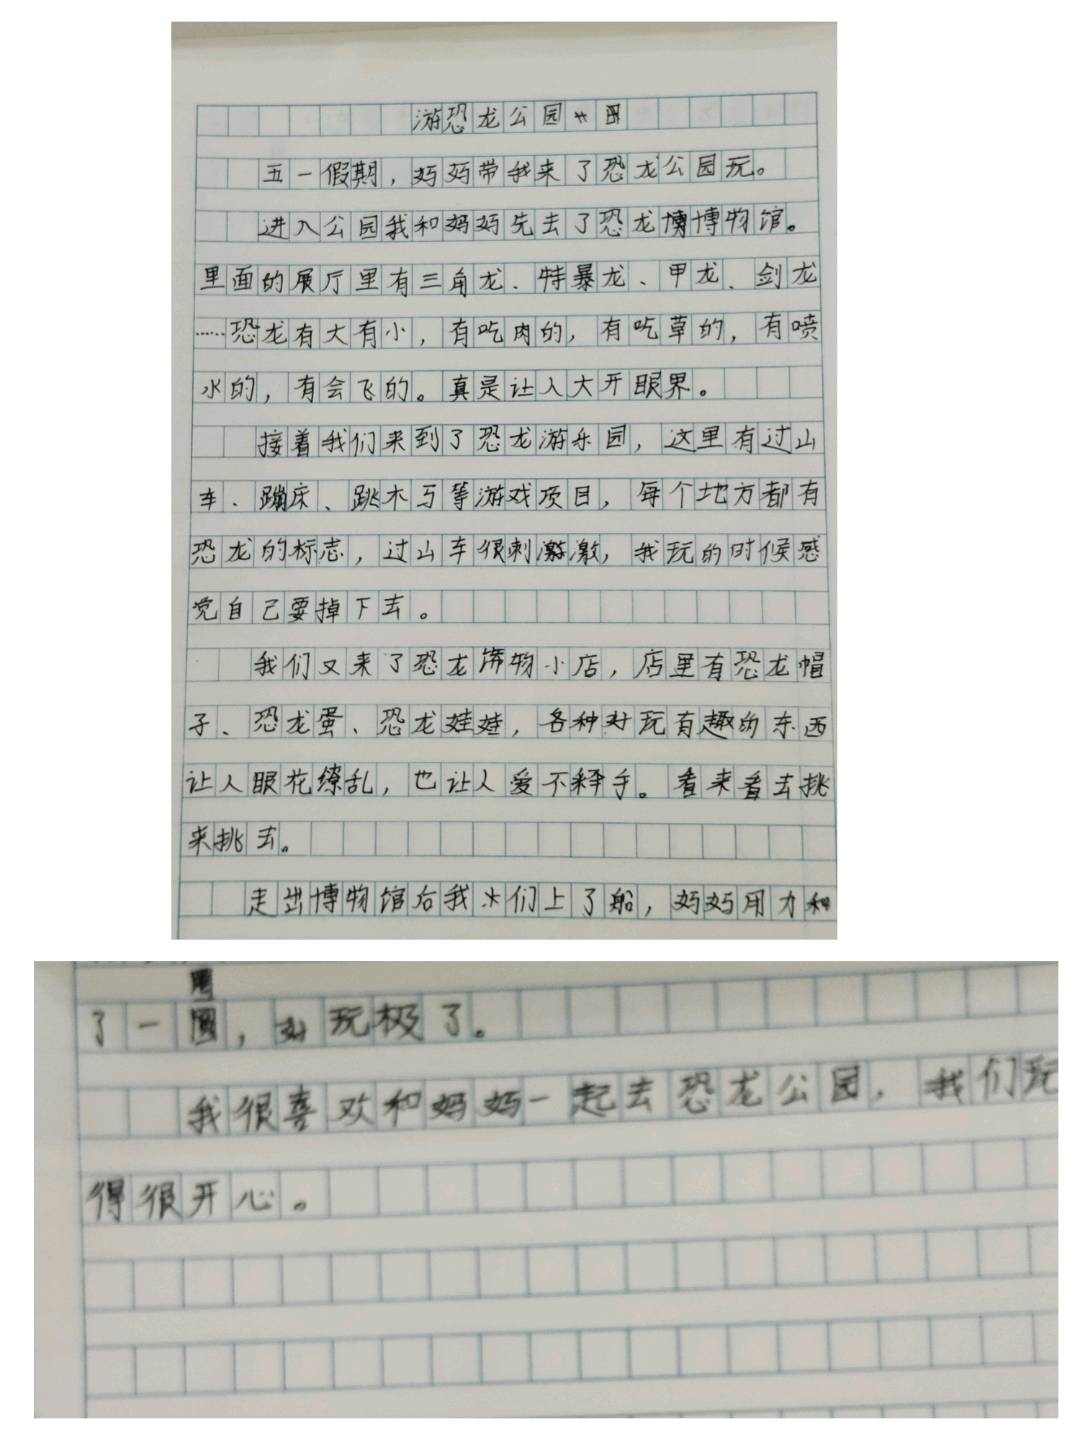 游恐龙公园
五一假期，妈妈带我来了恐龙公园玩。
进入公园我和妈妈先去了恐龙博物馆。
里面的展厅里有三角龙、特暴龙、甲龙、剑龙
……恐龙有大有小，有吃肉的，有吃草的，有喷
水的，有会飞的。真是让人大开眼界。
接着我们来到了恐龙游乐园，这里有过山
车、蹦床、跳木马等游戏项目，每个地方都有
恐龙的标志，过山车很刺激，我玩的时候感
觉自己要掉下去。
我们又来了恐龙饰物小店，店里有恐龙帽
子、恐龙蛋、恐龙娃娃，各种好玩有趣的东西
让人眼花缭乱，也让人爱不释手。看来看去挑
来挑去。
走出博物馆后我们上了船，妈妈用力
了一圈，好玩极了。
我很喜欢和妈妈一起去恐龙公园，我们玩
得很开心。